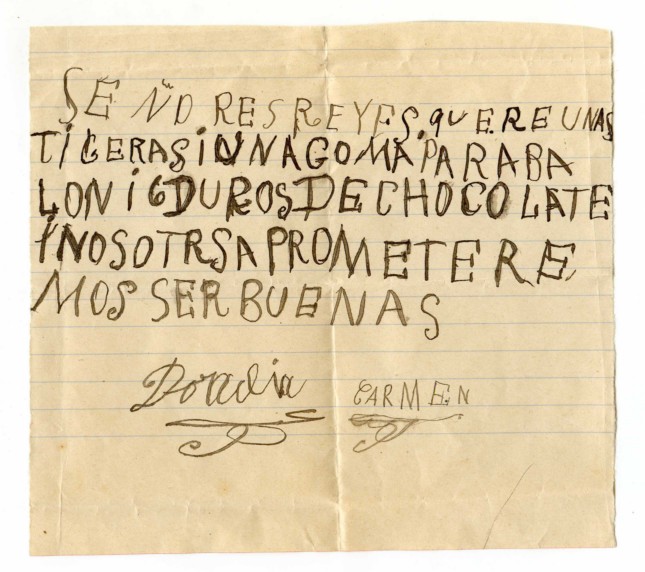 SEÑO RES REYES. QUERE UNAS
TIGERAS i UNA GOMA PARA BA
LON i 6 DUROS DE CHOCOLATE
i NOSOTRSA PROMETERE
MOS SER BUENAS
Doradia CARMEN